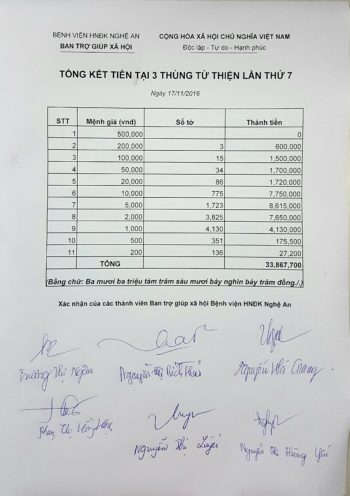 BỆNH VIỆN HNĐK NGHỆ AN
BAN TRỢ GIÚP XÃ HỘI
CỘNG HÒA XÃ HỘI CHỦ NGHĨA VIỆT NAM
Độc lập - Tự do - Hạnh phúc
TỔNG KẾT TIỀN TẠI 3 THÙNG TỪ THIỆN LẦN THỨ 7
Ngày 17/11/2016
STT Mệnh giá (vnd) Số tờ Thành tiền
1 500,000 0
2 200,000 3 600,000
3 100,000 15 1,500,000
4 50,000 34 1,700,000
5 20,000 86 1,720,000
6 10,000 775 7,750,000
7 5,000 1,723 8,615,000
8 2,000 3,825 7,650,000
9 1,000 4,130 4,130,000
10 500 351 175,500
11 200 136 27,200
TỔNG 33,867,700
(Bằng chữ: Ba mươi ba triệu tám trăm sáu mươi bảy nghìn bảy trăm đồng./.)
Xác nhận của các thành viên Ban trợ giúp xã hội Bệnh viện HNĐK Nghệ An
Trương Thị Ngân
Nguyễn Thị
Nguyễn
Phan Thị
Nguyễn Thị
Nguyễn Thị Hồng